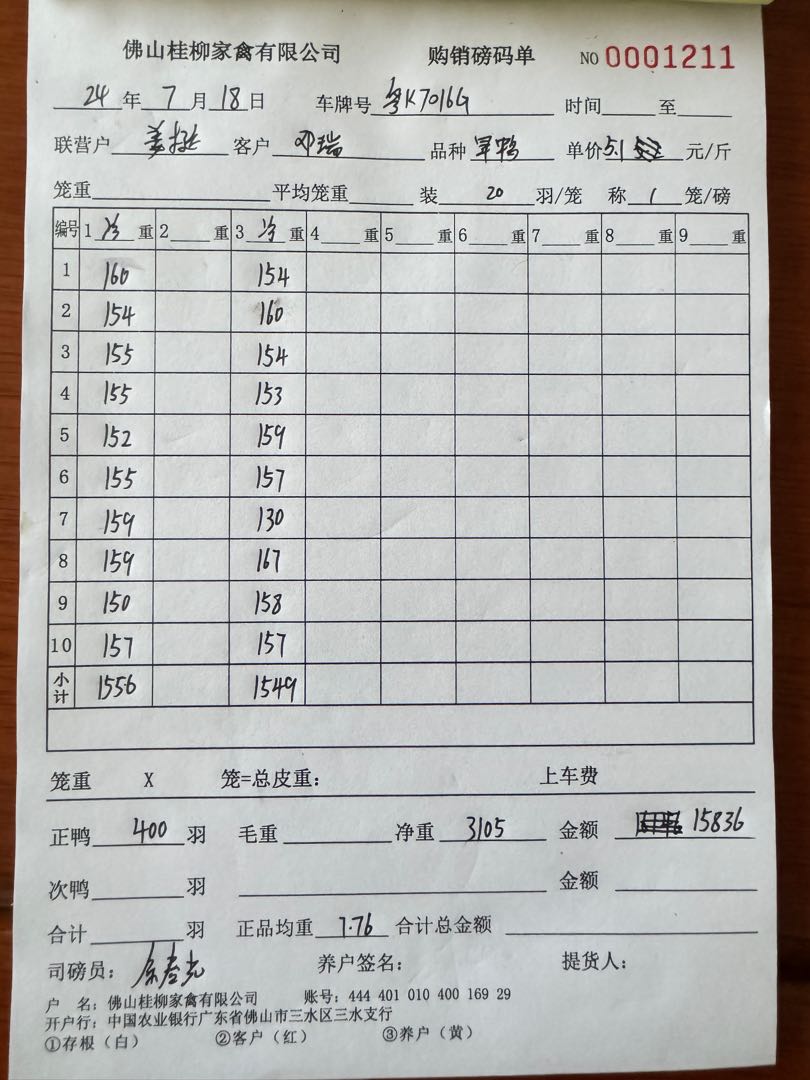 佛山桂柳家禽有限公司 购销磅码单 NO 0001211
24 年 7 月 18 日 车牌号 粤K7016G 时间 至
联营户 客户 邓瑞 品种 旱鸭 单价 5.1 元/斤
笼重 平均笼重 装 20 羽/笼 称 1 笼/磅
编号 1 净 重 2 重 3 净 重 4 重 5 重 6 重 7 重 8 重 9 重
1 160 154
2 154 160
3 155 154
4 155 153
5 152 159
6 155 157
7 159 130
8 159 167
9 150 158
10 157 157
小计 1556 1549
笼重 X 笼=总皮重： 上车费
正鸭 400 羽 毛重 净重 3105 金额 15836
次鸭 羽 金额
合计 羽 正品均重 7.76 合计总金额
司磅员： 养户签名： 提货人：
户 名：佛山桂柳家禽有限公司 账号：444 401 010 400 169 29
开户行：中国农业银行广东省佛山市三水区三水支行
①存根（白） ②客户（红） ③养户（黄）